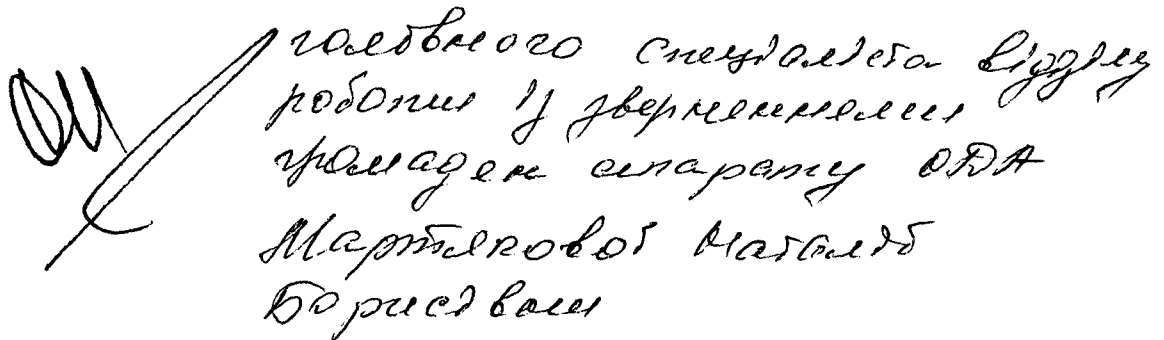 головного спеціаліста відділу
роботи із зверненнями
громадян апарату ОДА
Мартякової Наталії
Борисівни